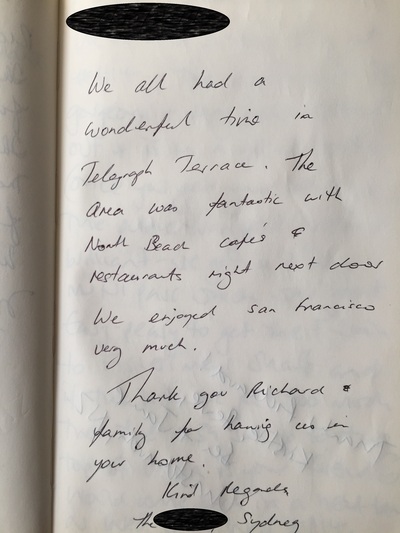 We all had a
wonderful time in
Telegraph Terrace. The
area was fantastic with
North Beach cafe's &
restaurants right next door
We enjoyed san francisco
very much.
Thank you Richard &
family for having us in
your home.
Kind Regards
The Sydney